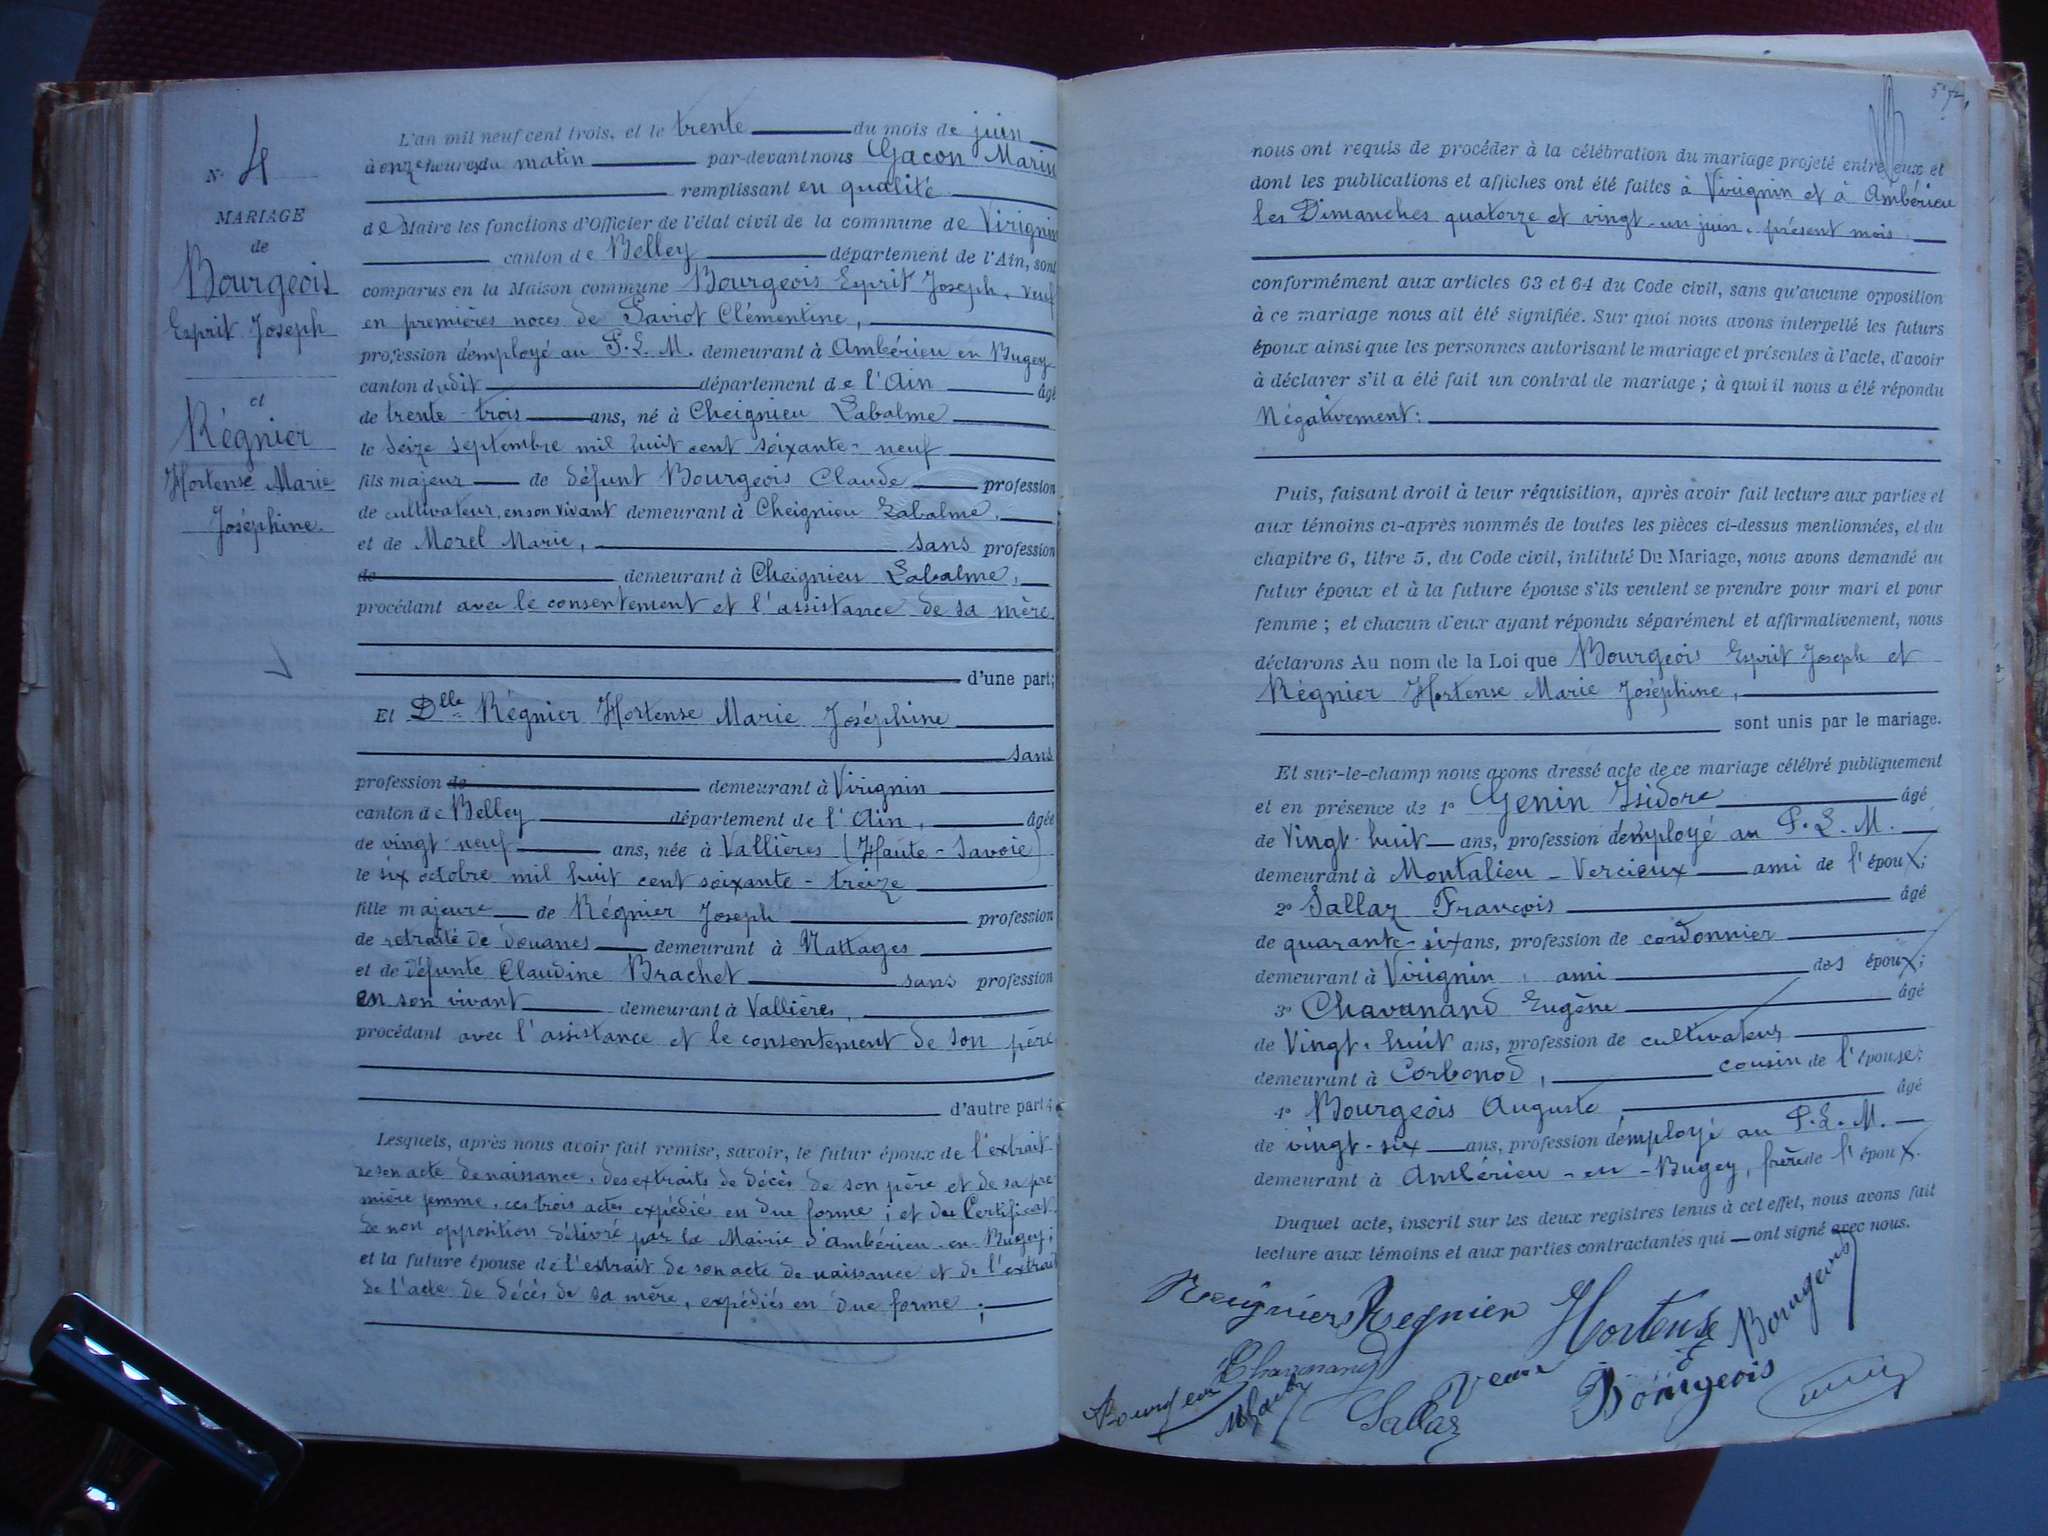 N° 4
MARIAGE
de
Bourgeois
Esprit Joseph
et
Régnier
Hortense Marie
Joséphine.
L'an mil neuf cent trois, et le trente du mois de juin
à onze heures du matin par-devant nous Gacon Marin
remplissant en qualité
de Maire les fonctions d'Officier de l'état civil de la commune de Virignin
canton de Belley département de l'Ain, sont
comparus en la Maison commune Bourgeois Esprit Joseph, veuf
en premières noces de Saviot Clémentine,
profession d'employé au P.L.M. demeurant à Ambérieu en Bugey
canton dudit département de l'Ain âgé
de trente-trois ans, né à Cheignieu Labalme
le seize septembre mil huit cent soixante-neuf
fils majeur de défunt Bourgeois Claude profession
de cultivateur, en son vivant demeurant à Cheignieu Labalme,
et de Morel Marie, sans profession
de demeurant à Cheignieu Labalme,
procédant avec le consentement et l'assistance de sa mère
d'une part;
Et Dlle Régnier Hortense Marie Joséphine
sans
profession de demeurant à Virignin
canton de Belley département de l'Ain, âgée
de vingt-neuf ans, née à Vallières (Haute-Savoie)
le six octobre mil huit cent soixante-treize
fille majeure de Régnier Joseph profession
de retraité de douanes demeurant à Nattages
et de défunte Claudine Brachet sans profession
en son vivant demeurant à Vallières,
procédant avec l'assistance et le consentement de son père
d'autre part;
Lesquels, après nous avoir fait remise, savoir, le futur époux de l'extrait
de son acte de naissance, des extraits de décès de son père et de sa pre
mière femme, ces trois actes expédiés en due forme; et du Certificat
de non opposition délivré par la Mairie d'Ambérieu-en-Bugey;
et la future épouse de l'extrait de son acte de naissance et de l'extrait
de l'acte de décès de sa mère, expédiés en due forme;
nous ont requis de procéder à la célébration du mariage projeté entre eux et
dont les publications et affiches ont été faites à Virignin et à Ambérieu
les Dimanches quatorze et vingt-un juin, présent mois
conformément aux articles 63 et 64 du Code civil, sans qu'aucune opposition
à ce mariage nous ait été signifiée. Sur quoi nous avons interpellé les futurs
époux ainsi que les personnes autorisant le mariage et présentes à l'acte, d'avoir
à déclarer s'il a été fait un contrat de mariage; à quoi il nous a été répondu
Négativement:
Puis, faisant droit à leur réquisition, après avoir fait lecture aux parties et
aux témoins ci-après nommés de toutes les pièces ci-dessus mentionnées, et du
chapitre 6, titre 5, du Code civil, intitulé Du Mariage, nous avons demandé au
futur époux et à la future épouse s'ils veulent se prendre pour mari et pour
femme; et chacun d'eux ayant répondu séparément et affirmativement, nous
déclarons Au nom de la Loi que Bourgeois Esprit Joseph et
Régnier Hortense Marie Joséphine,
sont unis par le mariage.
Et sur-le-champ nous avons dressé acte de ce mariage célébré publiquement
et en présence de 1° Genin Isidore âgé
de Vingt-huit ans, profession d'employé au P.L.M.
demeurant à Montalieu-Vercieux ami de l'époux;
2° Sallaz François âgé
de quarante-six ans, profession de cordonnier
demeurant à Virignin, ami des époux;
3° Chavanand Eugène âgé
de Vingt-huit ans, profession de cultivateur
demeurant à Corbonod, cousin de l'épouse;
4° Bourgeois Auguste, âgé
de vingt-six ans, profession d'employé au P.L.M.
demeurant à Ambérieu-en-Bugey, frère de l'époux.
Duquel acte, inscrit sur les deux registres tenus à cet effet, nous avons fait
lecture aux témoins et aux parties contractantes qui ont signé avec nous.
Regnier Hortense Bourgeois
Chavanand
Sallaz Bourgeois